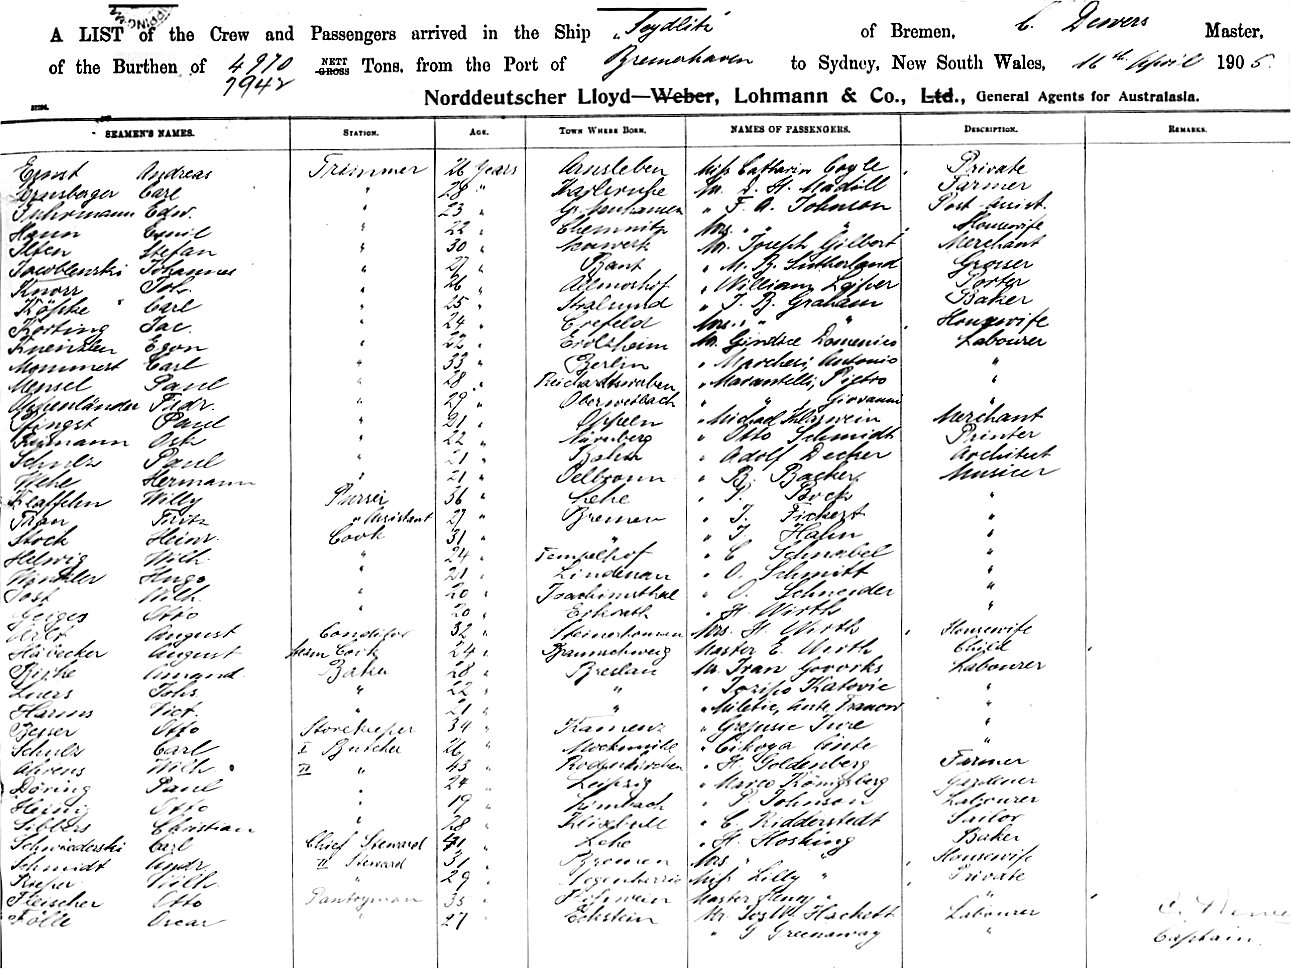 A LIST of the Crew and Passengers arrived in the Ship "Seydlitz" of Bremen, C. Dewers Master,
of the Burthen of 4970 NETT GROSS Tons, from the Port of Bremerhaven to Sydney, New South Wales, 16th April 1905.
7942
Norddeutscher Lloyd—Weber, Lohmann & Co., Ltd., General Agents for Australasia.
SEAMEN'S NAMES. STATION. AGE. TOWN WHERE BORN. NAMES OF PASSENGERS. DESCRIPTION. REMARKS.
Ernst Andreas Trimmer 26 Years Arnsleben Miss Catharin Coyle Private
Carl " 28 " Karlsruhe Mr. D. H. Madill Farmer
Fuhrmann Edw. " 23 " " F. A. Johnson Post-assist.
Hann Emil " 22 " Chemnitz Mrs. " " Housewife
Stefan " 30 " Mr. Joseph Gilbert Merchant
Johannes " 27 " Bant " M. B. Sutherland Grosser
Knorr Joh. " 26 " " William Leiper Porter
Köpke Carl " 25 " Stralsund " T. B. Graham Baker
Körting Jac. " 24 " Crefeld Mrs. " " Housewife
Egon " 22 " Mr. Domenico Labourer
Mommert Carl " 33 " Berlin " Marcheri, Antonio "
Mensel Paul " 28 " Reichardtswerben " Marantelli, Pietro "
Aschenländer Fridr. " 29 " Oberweibach " " Giovanni "
Pfingst Paul " 21 " Oppeln " Michael Merchant
Osk. " 22 " Nürnberg " Otto Schmidt Printer
Schulz Paul " 21 " " Adolf Decker Architect
Wehe Hermann " 21 " Oelbronn " B. Backer Musicer
Klaffehn Willy Purser 36 " Lehe " P. Bock "
Fritz " Assistant 27 " Bremen " T. Fickert "
Stock Heinr. Cook 31 " " " J. Hahn "
Helwig Wilh. " 24 " Tempelhof " C. Schnabel "
Winkler Hugo " 21 " Lindenau " O. Schmitt "
Jost Wilh. " 20 " Joachimsthal " O. Schneider "
Geiges Otto " 20 " Erkrath " H. Wirth "
Arlt August Conditor 32 " Mrs. H. Wirth Housewife
Häbecker August Steam Cook 24 " Braunschweig Master E. Wirth Child
Amand Baker 28 " Breslau Mr. Ivan Labourer
Luers Johs. " 22 " " " Josipo Katovic "
Harms Vict. " 21 " " Miletic, Ante Franow "
Besser Otto Storekeeper 34 " Kamenz " Jure "
Schulz Carl I Butcher 26 " Mockmühl " Ante "
Ahrens Wilh. II " 43 " Rodenkirchen " H. Goldenberg Farmer
Döring Paul " 24 " Leipzig " Marco Königsberg Gardener
Heinig Otto " 19 " Limbach " P. Johnson Labourer
Sibbers Christian " 28 " Klixbull " C. Ridderstedt Sailor
Schwiederski Carl Chief Steward 41 " Lehe " H. Hosking Baker
Schmidt Andr. II Steward 31 " Bremen Mrs " " Housewife
Wilh. " 29 " Miss Lilly " Private
Fleischer Otto Pantryman 35 " Master Henry " "
Fölle Oscar " 27 " Eckstein Mr. Hackett Labourer
" G Greenaway "
C. Dewers
Captain.